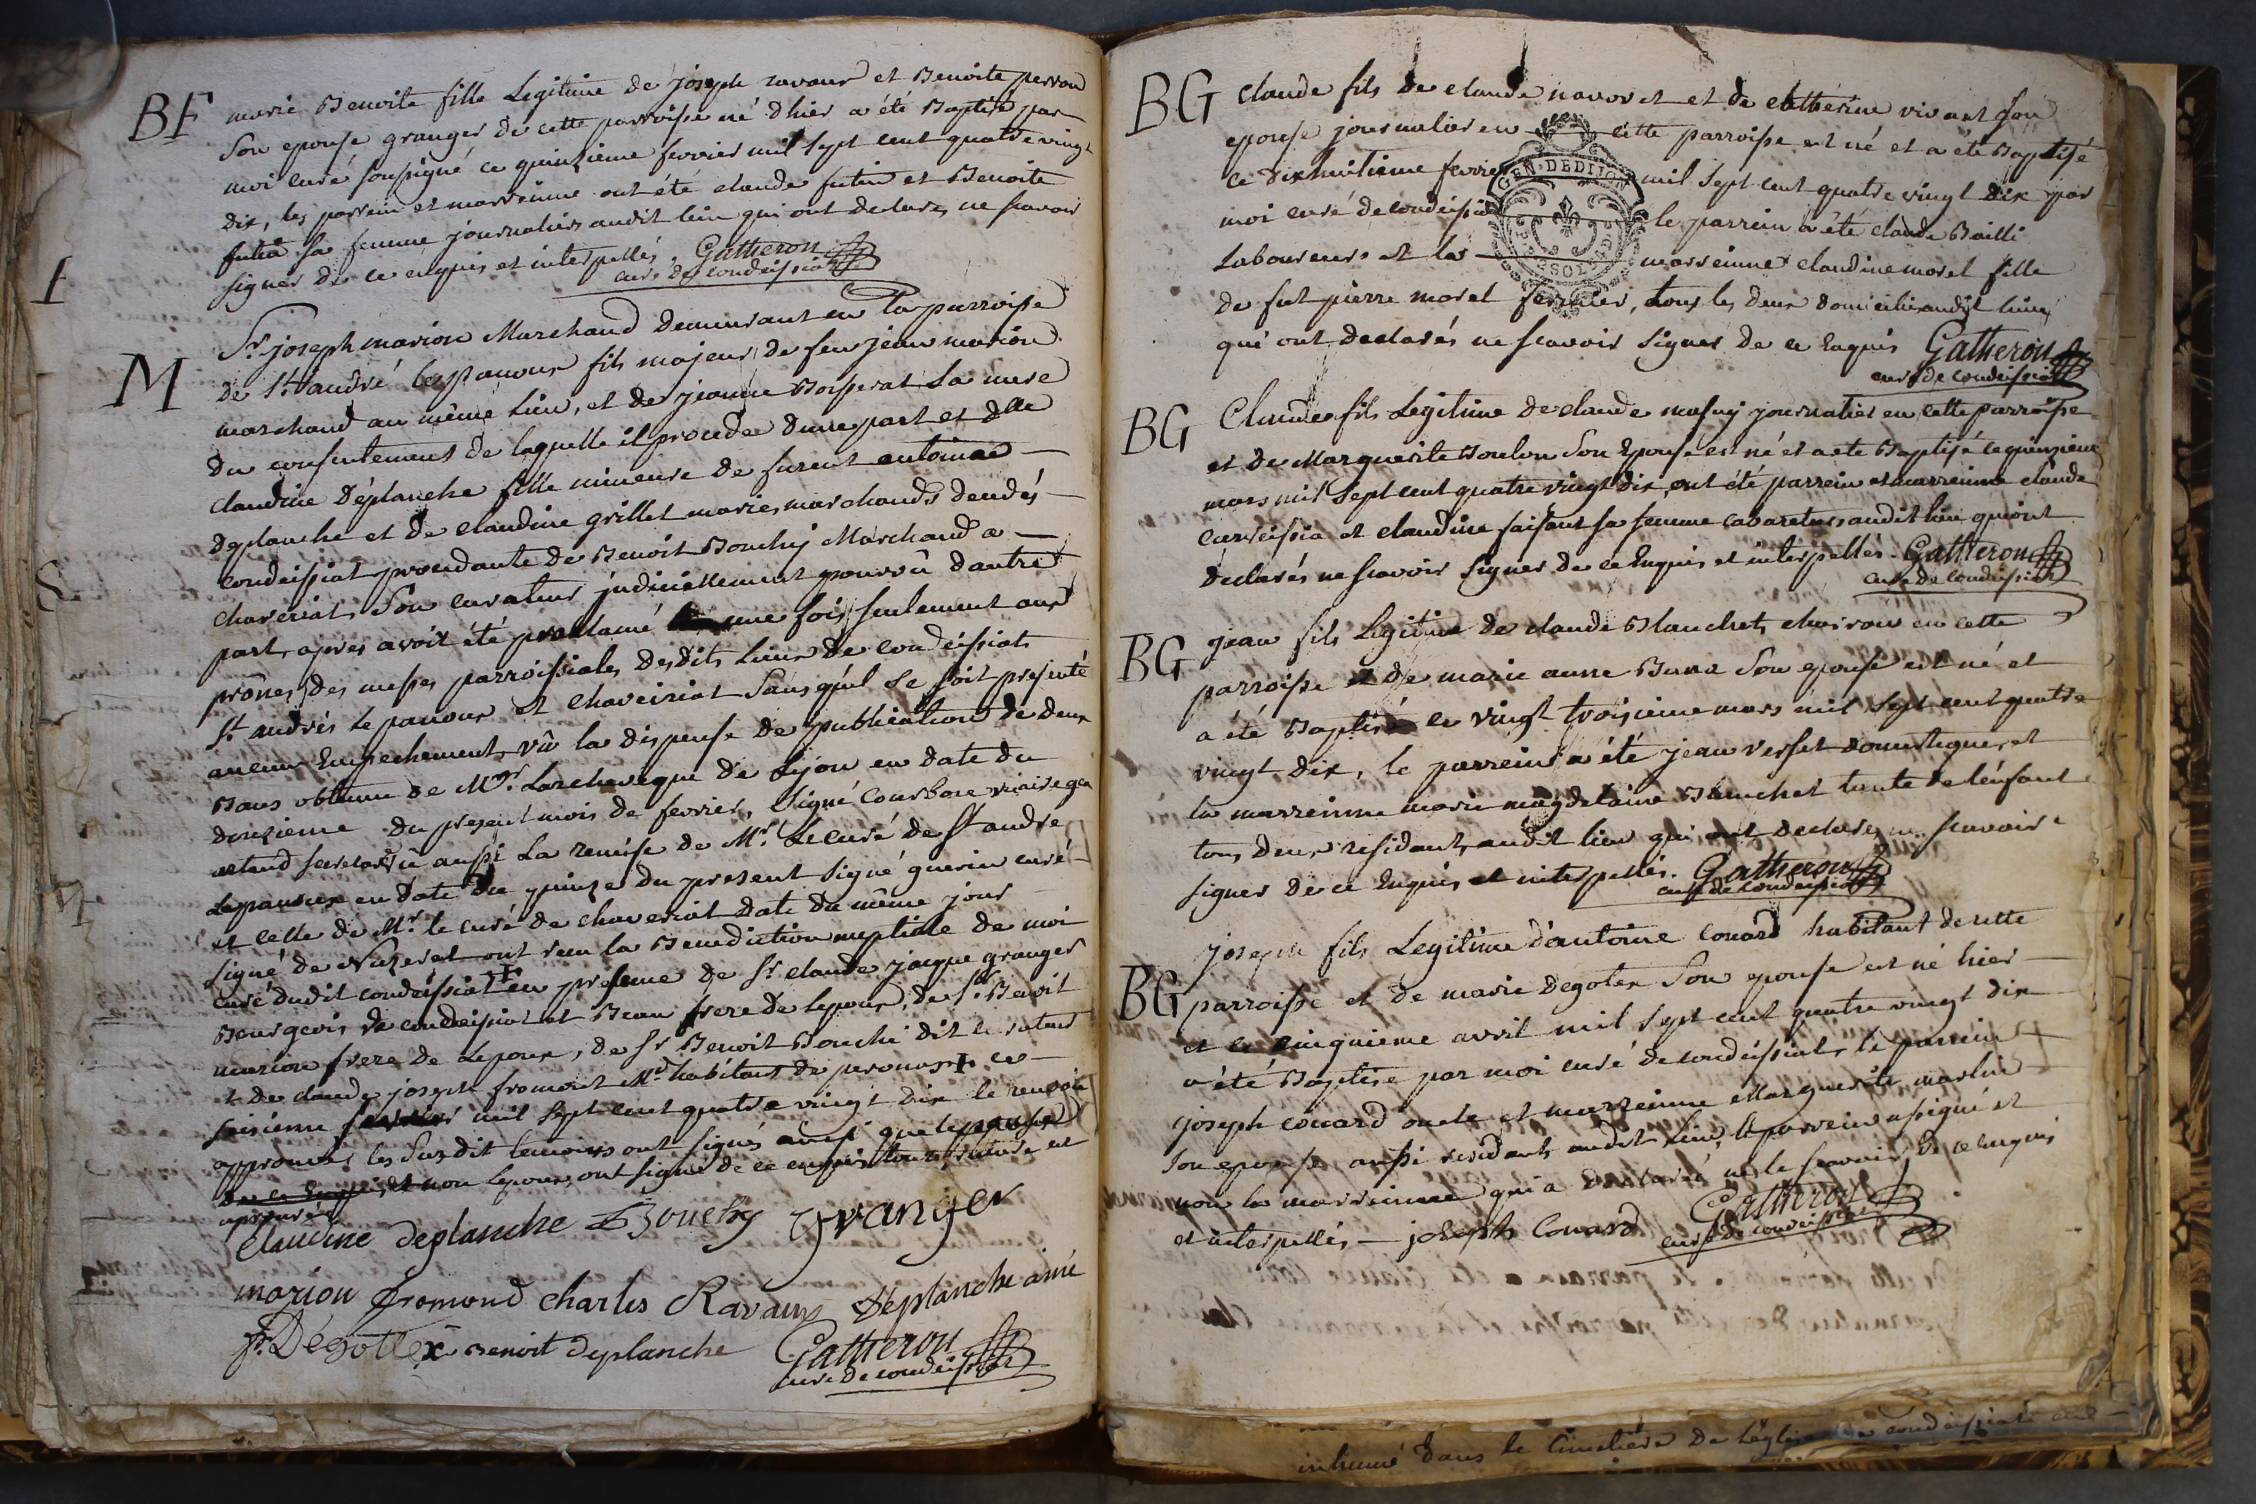 BF
marie Benoite fille Legitime de joseph ravaux et Benoite perron
Son epouse granger de cette parroisse né d'hier a été Baptisé par
moi curé soussigné ce quinzieme fevrier mil sept cent quatre vingt
dix, les parrein et marreinne ont été claude futin et Benoite
futin sa femme journaliers audit lieu qui ont declarés ne scavoir
signer de ce enquis et interpellés. Gatheron
curé de condeissiat
M
Sr. joseph marion Marchand demeurant en la parroisse
de St. andré le panoux fils majeur de feu jean marion
marchand au même Lieu, et de jeanne Boisserat La mere
du consentement de laquelle il procede d'une part et dlle
claudine Déplanche fille mineure de furent antoine
deplanche et de claudine grillet mariés marchands dudés
condeissiat procedante de Benoit Bouchy Marchand a
chaveriat Son curateur judiciellement pourvû d'autre
part, après avoir été proclamé une fois seulement aux
prônes des messes parroissiales desdits Lieux de condeissiat
St. andrés le panoux et chaveiriat Sans qu'il se soit presenté
aucun Empechement, vû la dispense de publication de deux
Bans obtenue de Mgr. Larcheveque de Lijon en date du
douzieme du present mois de fevrier, Signé Courbon vicaire gen
La remise de Mr. Le curé de St andre
Lepanoux en Date du quinze du present Signé guerin curé
et celle de Mr. le curé de chaveriat Date du même jour
Signé de ont recu la Benediction nuptiale de moi
curé dudit condeissiat en presence de Sr. claude jaque granger
Bourgeois de condeissiat et Beau frere de lepoux, de Sr. Benoit
marion frere de Lepoux, de Sr Benoit Bouchi dit
et de claude joseph fromont Md. habitant de peronas ce
seisieme fevrier mil sept cent quatre vingt dix le renvoi
approuvé les Susdit temoins ont signés ainsi que
de ce Enquis, et non lepoux, ont signé de ce enquis
approuvée
Claudine deplanche Bouchy Granger
marion fromond charles Ravaux Déplanche ainé
Dégottex Benoit Deplanche Gatheron
curé de condeissiat
BG
claude fils de claude navoret et de catherine vivant son
epouse journalier en cette parroisse est né et a été Baptisé
ce dixhuitieme fevrier mil sept cent quatre vingt dix par
moi curé de condeissiat le parrein a été claude Bailli
Laboureur et la marreinne claudine morel fille
de fut pierre morel fermier, tous les deux domiciliés audit lieu
qui ont declarés ne scavoir signer de ce Enquis Gatheron
curé de condeissiat
GEN. DEDIJON
BG
Claude fils Legitime de claude mafuy journalier en cette parroisse
et de Marguerite Boulon Son Epouse est né et a ete Baptisé ce quinzieme
mars mil sept cent quatre vingt dix, ont été parrein et marreinne claude
condeissia et claudine faisant sa femme cabaretiers audit lieu qui ont
declarés ne scavoir signer de ce Enquis et interpellés. Gatheron
curé de condeissiat
BG
jean fils Legitime de claude Blanchet, charron en cette
parroisse et de marie anne Buna Son epouse est né et
a été Baptisé ce vingt troisieme mars mil sept cent quatre
vingt dix, le parrein a été jean verset domestique, et
la marreinne marie magdelaine Blanchet tante de lenfant
tous deux residants audit lieu qui ont declarés ne scavoir
signer de ce Enquis et interpellés. Gatheron
curé de condeissiat
BG
joseph fils Legitime d'antoine Couard habitant de cette
parroisse et de marie Degotex Son epouse est né hier
et ce cinquieme avril mil sept cent quatre vingt dix
a été Baptisé par moi curé de condeissiat, le parrein
joseph couard oncle et marreinne Marguerite marlin
Son epouse, aussi residants audit Lieu, le parrein a signé et
non la marreinne qui a Declaré ne le scavoir de ce enquis
et interpellés — joseph Couard Gatheron
curé de condeissiat
inhumé dans le Cimetiere de L'eglise de condeissiat